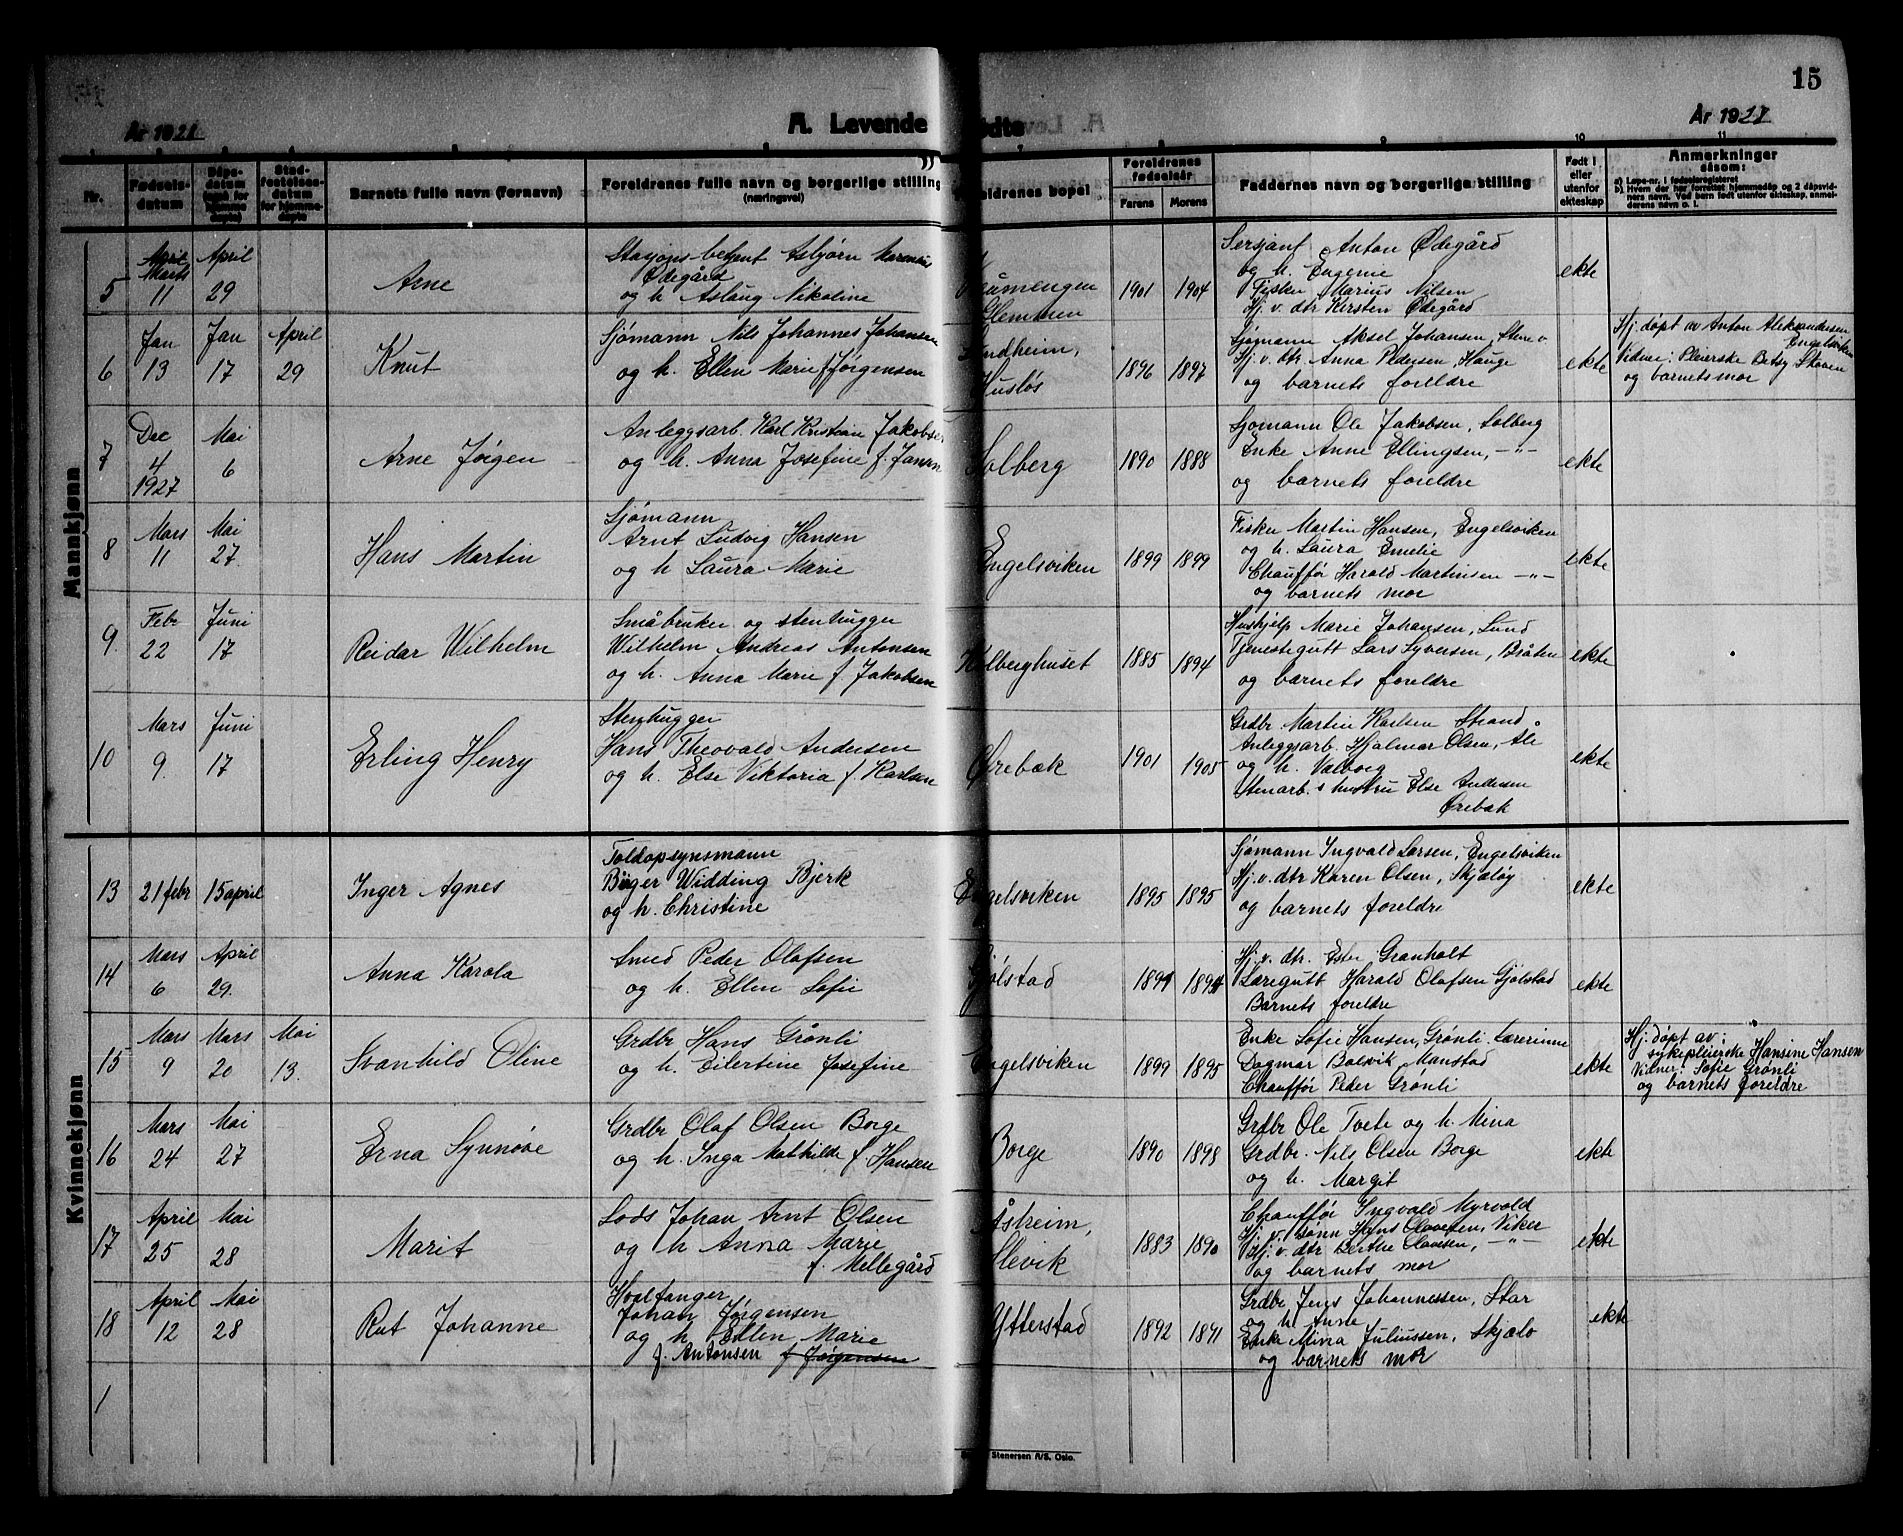 15
År 1928
A. Levende
ødte
År 1928
Nr.
Fødsels-
datum
Dåps-
datum
Stad-
festelses-
datum
for hjemme-
døpte
Barnets fulle navn (fornavn)
Foreldrenes fulle navn og borgerlige stilling
(næringsvei)
ldrenes bopel
Foreldrenes
fødselsår
Farens Morens
Faddernes navn og borgerlige stilling
Født i
eller
utenfor
ekteskap
Anmerkninger
såsom:
a) Løpe-nr. i fødselsregisteret
b) Hvem der har forrettet hjemmedåp og 2 dåpsvid-
ners navn. Ved barn født utenfor ekteskap, anmel-
derens navn o. l.
Mannkjønn
5
Marts
11
April
29
Arne
Stasjonsbetjent Asbjørn Marenius
Ødegård
og h Aslaug Nikoline
Glemmen
1901 1904
Sersjant Anton Ødegård
og h. Eugenie
Fisker Marius Nilsen
Hj. v. dtr Kirsten Ødegård
ekte
6
Jan
13
Jan
17
April
29
Knut
Sjømann Nils Johannes Johansen
og h. Ellen Marie f Jørgensen
Lindheim,
Husløs
1896 1897
Sjømann Aksel Johansen,
Hj. v. dtr. Anna Pedersen, Hauge
og barnets foreldre
ekte
Hj. døpt av Anton Aleksandersen
Engelsviken
Vidner: Pleierske Betsy Skoven
og barnets mor
7
Dec
4
1927
Mai
6
Arne Jørgen
Anleggsarb. Karl Kristian Jakobsen
og h. Anna Josefine f. Jansen
Solberg
1890 1888
Sjømann Ole Jakobsen, Solberg
Enke Anne Ellingsen, -"-
og barnets foreldre
ekte
8
Mars
11
Mai
27.
Hans Martin
Sjømann
Arnt Ludvig Hansen
og h Laura Marie
Engelsviken
1899 1899
Fisker Martin Hansen, Engelsviken
og h. Laura Emelie
Chauffør Harald Martinsen -"-
og barnets mor
ekte
9.
Febr
22
Juni
17
Reidar Wilhelm
Småbruker og stenhugger
Wilhelm Andreas Antonsen
og h. Anna Marie f. Jakobsen
Kolberghuset
1885 1894
Hushjelp Marie Johansen, Lund
Tjenestegutt Lars Syversen, Bråten
og barnets foreldre
ekte
10
Mars
9.
Juni
17
Erling Henry
Stenhugger
Hans Theovald Andersen
og h. Else Viktoria f. Karlsen
Ørebæk
1901 1905
Grdbr. Martin Karlsen Strand
Anleggsarb. Hjalmar Olsen, Åle
og h. Valborg
Stenarb.s hustru Else Andersen
Ørebæk
ekte
Kvinnekjønn
13
21 febr
15 april
Inger Agnes
Toldopsynsmann
Birger Widding Bjerk
og h. Christine
Engelsviken
1895 1895
Sjømann Ingvald Larsen, Engelsviken
Hj. v. dtr Karen Olsen, Skjæløy
og barnets foreldre
ekte
14
Mars
6
April
29.
Anna Karola
Smed Peder Olafsen
og h. Ellen Sofie
Gjølstad
Hj. v. dtr. Ester Granholt
Læregutt Harald Olafsen Gjølstad
Barnets foreldre
ekte
15
Mars
9
Mars
20
Mai
13.
Svanhild Oline
Grdbr Hans Grønli
og h. Eilertine Josefine
Engelsviken
1899 1895
Enke Sofie Hansen, Grønli. Lærerinne
Dagmar Bolsvik Manstad
Chauffør Peder Grønli
ekte
Hj. døpt av:
sykepleierske Hansine Hansen
Vitner: Sofie Grønli
og barnets foreldre
16
Mars
24
Mai
27
Erna Synnøve
Grdbr Olaf Olsen Borge
og h. Inga Mathilde f. Hansen
Borge
1890 1898
Grdbr Ole Tvete og h. Mina
Grdbr. Nils Olsen Borge
og h. Margit
ekte
17
April
25
Mai
28
Marit
Lods Johan Arnt Olsen
og h Anna Marie
f. Mellegård
Åsheim,
Slevik
1883 1890
Chauffør Ingvald Myrvold
Hj. v. sønn Hans Olavesen, Viker
Hj. v. dtr Berthe Olavesen, -"-
og barnets mor
ekte
18
April
12
Mai
28
Rut Johanne
Hvalfanger
Johan Jørgensen
og h. Ellen Marie
f. Antonsen f Jørgensen
Ytterstad
1892 1891
Grdbr Jens Johannessen, Star
og h. Anne
Enke Mina Juliussen, Skjælø
og barnets mor
ekte
1
Stenersen A/S. Oslo.